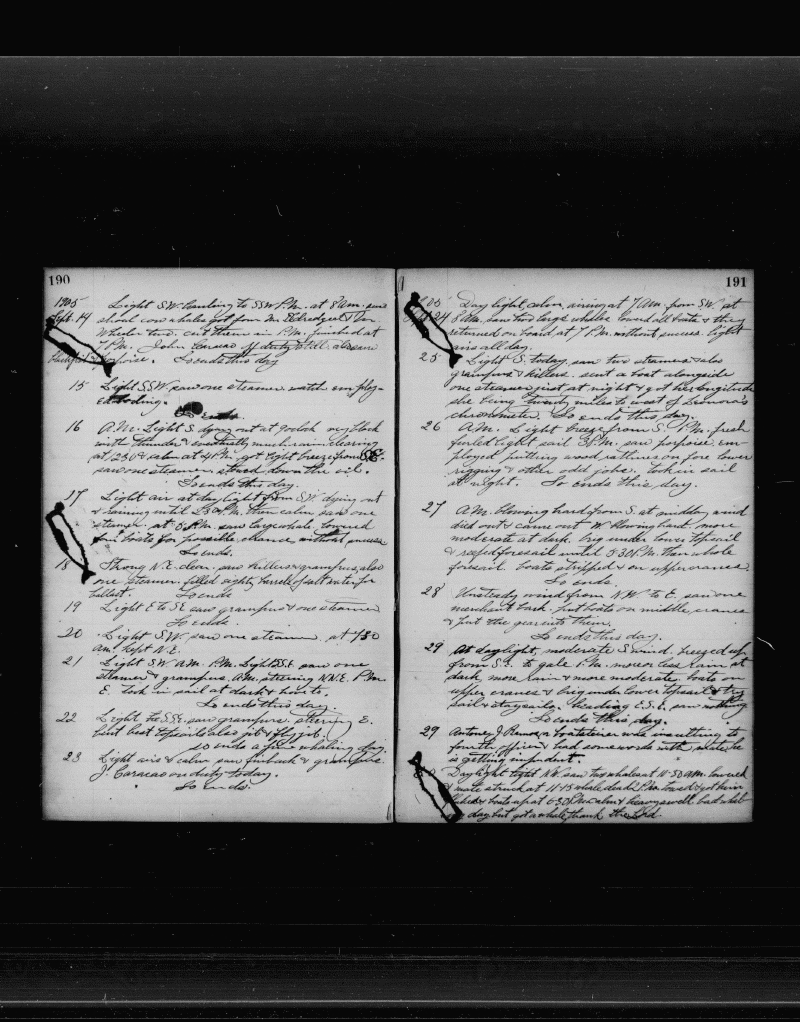 190
1905 Light S.W. hauling to SSW P.M. at 8 am. saw
Sept. 14 shoal cow whales got four Mr. Eldredge &
two. cut them in P.M. finished at
7 P.M. John off duty still. also saw
blackfish & porpoise. So ends this day
15 Light SSW saw one steamer. watch employ-
ed
So ends.
16 A.M. Light S. dying out at 9 oclock very black
with thunder & much rain clearing
at 2.30 & calm at 4 P.M. got light breeze from
saw one steamer. down the oil.
So ends this day.
17 Light air at day light from SW dying out
& raining until P.M. then calm saw one
steamer. at P.M. saw large whale lowered
boats for possible chance without success
So ends.
18 Strong N.E. clear. saw killers & grampus, also
one steamer. filled eighty barrels of salt water for
ballast. So ends
19 Light E to SE saw grampus & one steamer
So ends.
20 Light SW saw one steamer. at 7.30
am. kept N.E.
21 Light SW A.M. P.M. Light SSE saw one
steamer & grampus. A.M. steering NNE. P.M.
E. took in sail at dark & boats.
So ends this day.
22 Light to SSE. saw grampus. steering E.
bent best topsails also jib & fly jib.
so ends a fine whaling day.
23 Light airs & calm saw finback & grampus.
J. on duty today.
So ends.
191
1905 Day light, calm, airing at 7 AM. from SW at
Sept 24 8 AM. saw two large whales lowered all boats & they
returned on board at 7 P.M. without success. light
airs all day.
25 Light S. today. saw two steamers, also
grampus & killers. sent a boat alongside
one steamer just at night & got her longitude
she being twenty miles to west of Leonora's
chronometer. So ends this day.
26 A.M. Light breeze from S. P.M. fresh
furled light sail 3 P.M. saw porpoise. em-
ployed putting wood on fore lower
rigging & other odd jobs. took in sail
at night. So ends this day.
27 A.M. blowing hard from S. at midday wind
died out & came out W. blowing hard. more
moderate at dark. brig under lower topsail
& reefed foresail until 5.30 P.M. then whole
foresail. boats stripped & on upper cranes.
So ends.
28 Unsteady wind from N.W. to E. saw one
merchant bark. put boats on middle cranes
& put the gear into them.
So ends this day.
29 At daylight, moderate S wind. breezed up
from S.E. to gale P.M. more or less rain at
dark more rain & more moderate. boats on
upper cranes & brig under lower topsail & try
sail & staysails. heading E.S.E. saw nothing.
So ends this day.
29 Antone J. a boatsteerer was insulting to
fourth officer & had some words with mate, he
is getting impudent.
Daylight light NE. saw two whales at 10.50 A.M. lowered
& mate struck at 11.15 whale dead towed & got him
& boats up at 6.30 P.M. calm & heavy swell. bad whal-
day but got a whale, thank the Lord.